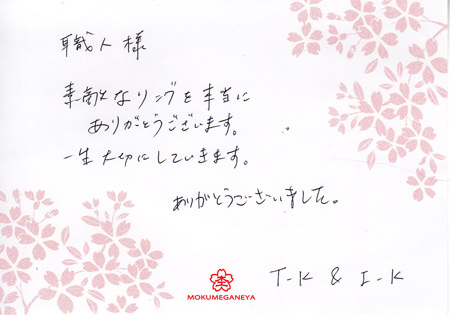 職人様
素敵なリングを本当に
ありがとうございます。
一生大切にしていきます。
ありがとうございました。
T-K & I-K
杢
MOKUMEGANEYA